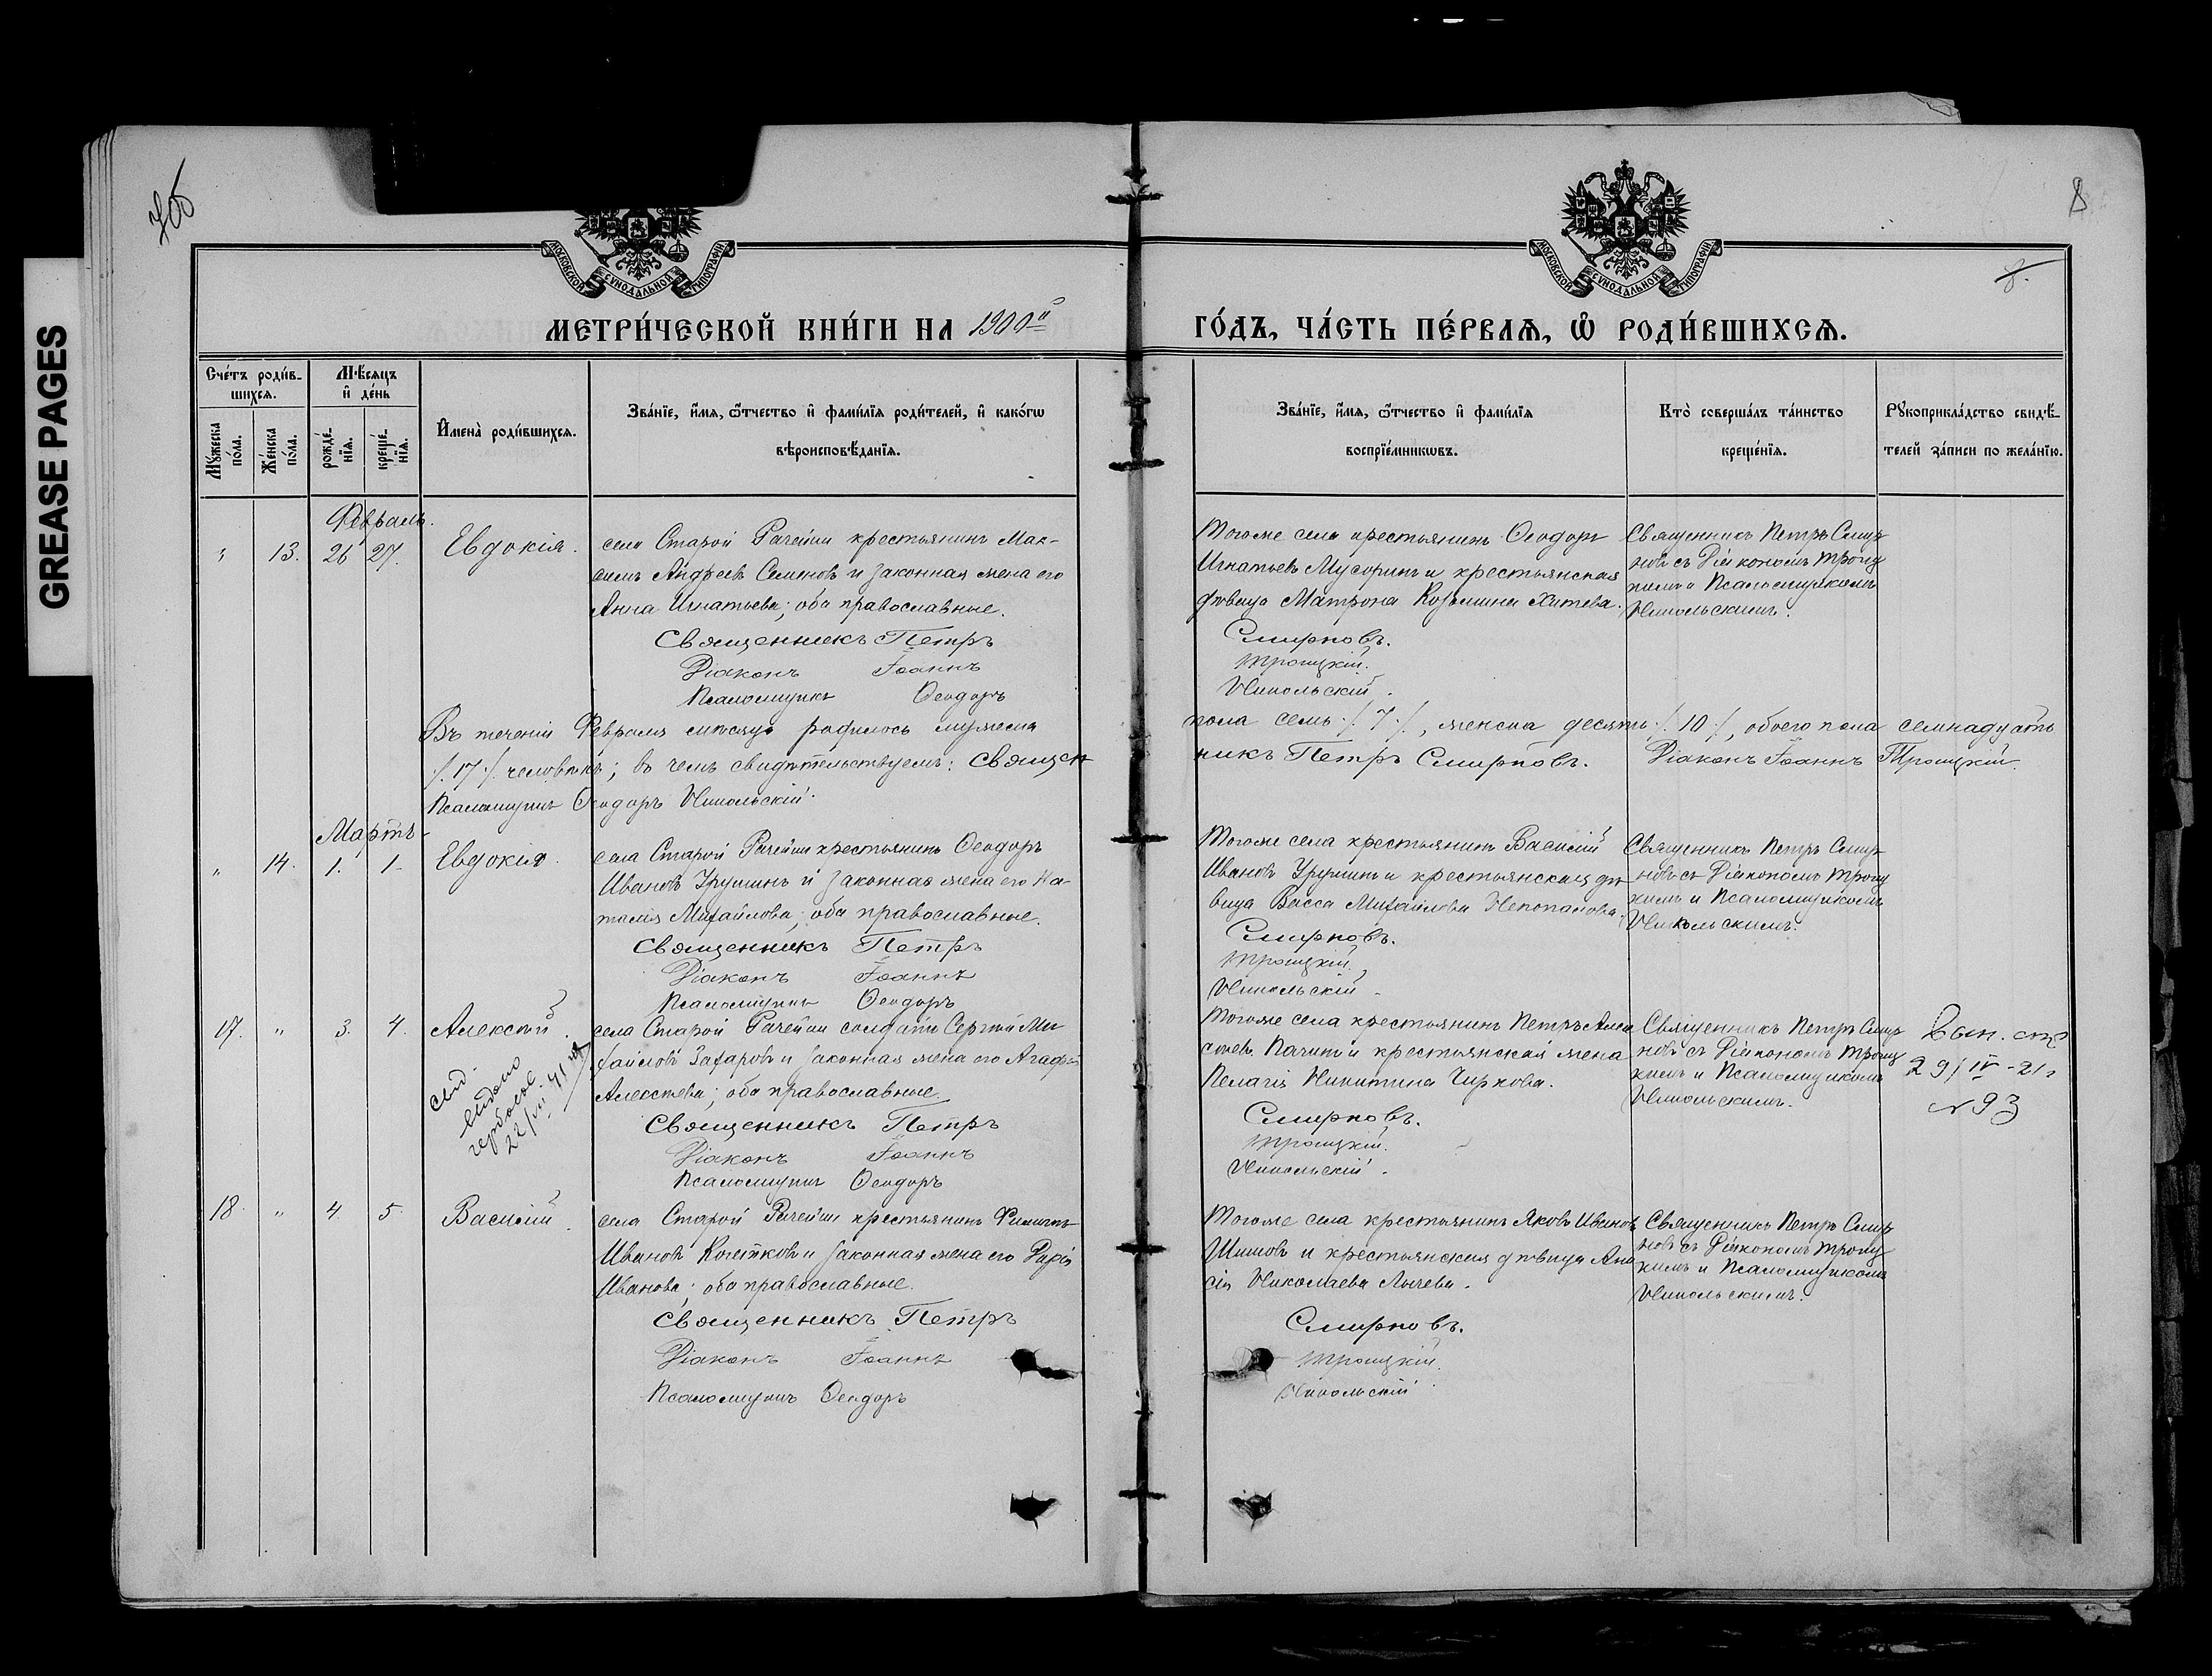 GREASE PAGES
8
МОСКОВСКОЙ СУНОДАЛЬНОЙ ТИПОГРАФІИ
МОСКОВСКОЙ СУНОДАЛЬНОЙ ТИПОГРАФІИ
МЕТРИ́ЧЕСКОЙ КНИ́ГИ НА 1900й
ГО́ДЪ, ЧА́СТЬ ПЕ́РВАѦ, Ѡ҆ РОДИ́ВШИХСѦ.
Сче́тъ роди́в-
шихсѧ.
Мꙋ́жеска по́ла.
Же́нска по́ла.
Мѣ́сѧцъ
и҆ де́нь
рожде́-нїѧ.
креще́-нїѧ.
И҆мена̀ роди́вшихсѧ.
Зва́нїе, и҆́мѧ, ѻ҆́тчество и҆ фами́лїѧ роди́телей, и҆ како́гѡ
вѣроисповѣ́данїѧ.
Зва́нїе, и҆́мѧ, ѻ҆́тчество и҆ фами́лїѧ
воспрїе́мникѡвъ.
Кто̀ соверша́лъ та́инство
креще́нїѧ.
Рꙋкоприкла́дство свидѣ́-
телей за́писи по жела́нїю.
Февраль.
" 13. 26 27. Евдокія.
села Старой Рачейки крестьянинъ Мак-
симъ Андреевъ Семеновъ и законная жена его
Анна Игнатьева; оба православные.
Священникъ Петръ
Діаконъ Іоаннъ
Псаломщикъ Ѳеодоръ
Тогоже села крестьянинъ Ѳеодоръ
Игнатьевъ Мусоринъ и крестьянская
дѣвица Матрона Козьмина Хитева.
Смирновъ.
Троицкій.
Никольскій.
Священникъ Петръ Смир
новъ съ Діакономъ Троиц
кимъ и Псаломщикомъ
Никольскимъ.
Въ теченіи Февраля мѣсяца родилось мужеска пола семь ./. 7 ./., женска десять ./. 10 ./., обоего пола семнадцать
./. 17 ./. человѣкъ; въ чемъ свидѣтельствуемъ: Священникъ Петръ Смирновъ. Діаконъ Іоаннъ Троицкій.
Псаломщикъ Ѳеодоръ Никольскій.
Мартъ
" 14. 1. 1. Евдокія.
села Старой Рачейки крестьянинъ Ѳеодоръ
Ивановъ Урушинъ и законная жена его На-
талія Михайлова; оба православные.
Священникъ Петръ
Діаконъ Іоаннъ
Псаломщикъ Ѳеодоръ
Тогоже села крестьянинъ Василій
Ивановъ Урушинъ и крестьянская дѣ
вица Васса Михайлова
Смирновъ.
Троицкій.
Никольскій.
Священникъ Петръ Смир
новъ съ Діакономъ Троиц
кимъ и Псаломщикомъ
Никольскимъ.
17. " 3. 4. Алексѣй.
села Старой Рачейки солдатъ Сергѣй Ми
хайловъ Захаровъ и законная жена его Агафія
Алексѣева; оба православные.
Священникъ Петръ
Діаконъ Іоаннъ
Псаломщикъ Ѳеодоръ
Тогоже села крестьянинъ Петръ Алек
сѣевъ и крестьянская жена
Пелагія Никитина Чиркова.
Смирновъ.
Троицкій.
Никольскій.
Священникъ Петръ Смир
новъ съ Діакономъ Троиц
кимъ и Псаломщикомъ
Никольскимъ.
Вып.
29/IV-21г
№93
18. " 4. 5. Василій.
села Старой Рачейки крестьянинъ Филиппъ
Ивановъ Кочетковъ и законная жена его Дарія
Иванова; оба православные.
Священникъ Петръ
Діаконъ Іоаннъ
Псаломщикъ Ѳеодоръ
Тогоже села крестьянинъ Яковъ Ивановъ
Шишовъ и крестьянская дѣвица
Николаева Лычева.
Смирновъ.
Троицкій.
Никольскій.
Священникъ Петръ Смир
новъ съ Діакономъ Троиц
кимъ и Псаломщикомъ
Никольскимъ.